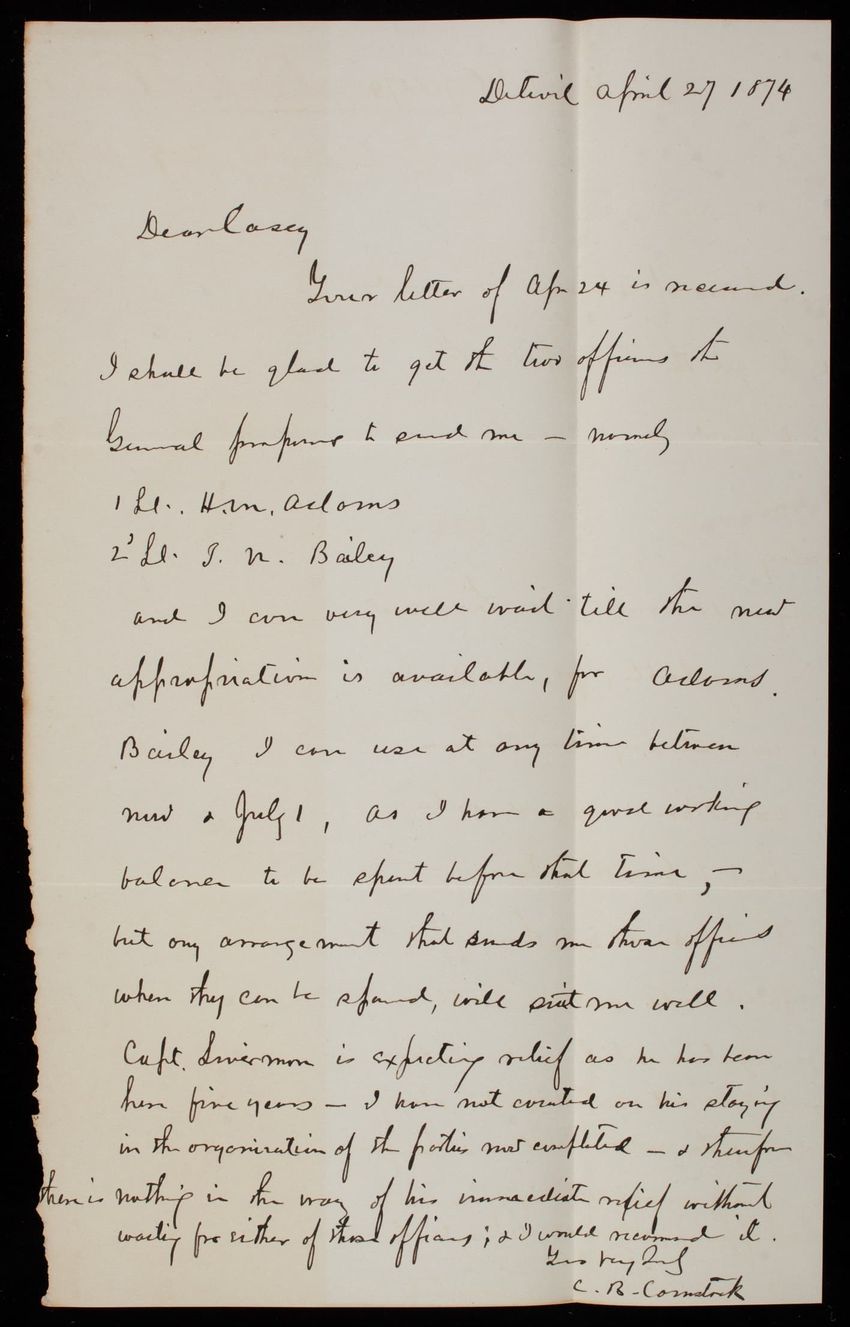 Detroit April 27 1874
Dear Casey
Your letter of Apr 24 is received.
I shall be glad to get the two officers the
General proposes to send me — namely
1 Lt. H. M. Adams
2d Lt. T. N. Bailey
and I can very well wait till the new
appropriation is available, for Adams.
Bailey I can use at any time between
now & July 1, as I have a good working
balance to be spent before that time, —
but any arrangement that sends me these officers
when they can be spared, will suit me well.
Capt. Livermore is expecting relief as he has been
here five years — I have not counted on his staying
in the organization of the parties now completed — & therefore
there is nothing in the way of his immediate relief without
waiting for either of these officers; & I would recommend it.
Yrs very truly
C. B. Comstock